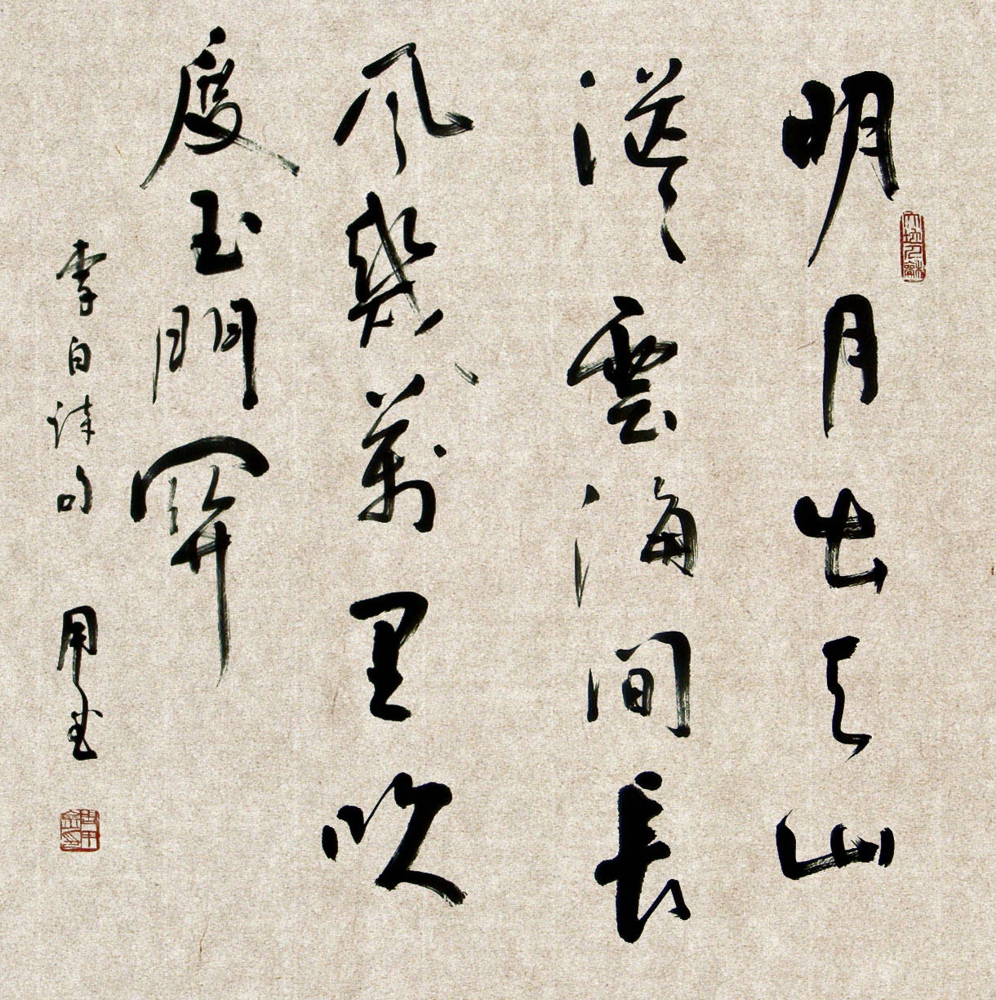 明月出天山
雲海間長
風幾萬里吹
度玉門關
李白詩句 用